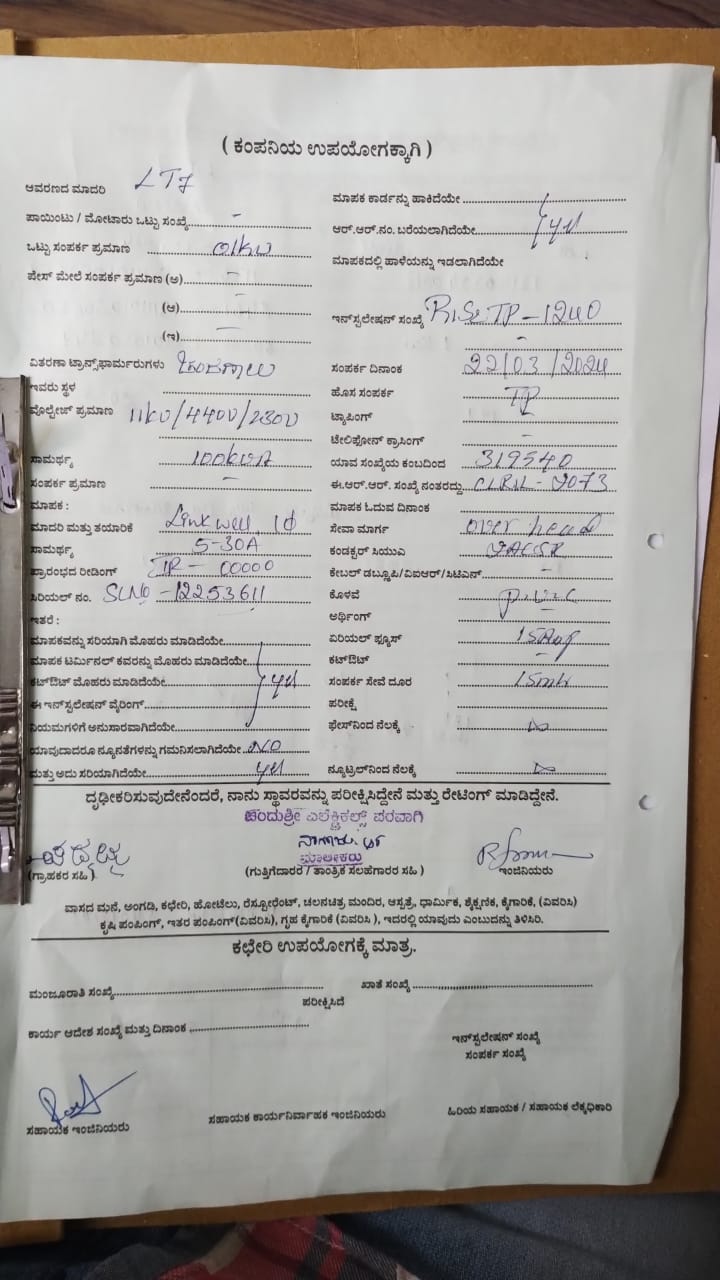 ( ಕಂಪನಿಯ ಉಪಯೋಗಕ್ಕಾಗಿ )
ಆವರಣದ ಮಾದರಿ LT7
ಪಾಯಿಂಟು / ಮೋಟಾರು ಒಟ್ಟು ಸಂಖ್ಯೆ -
ಒಟ್ಟು ಸಂಪರ್ಕ ಪ್ರಮಾಣ 01kw
ಪೇಸ್ ಮೇಲೆ ಸಂಪರ್ಕ ಪ್ರಮಾಣ (ಅ) -
(ಆ) -
(ಇ) -
ವಿತರಣಾ ಟ್ರಾನ್ಸ್‌ಫಾರ್ಮರುಗಳು
ಇವರು ಸ್ಥಳ
ವೊಲ್ಟೇಜ್ ಪ್ರಮಾಣ 11kv/440v/230v
ಸಾಮರ್ಥ್ಯ 100kvA
ಸಂಪರ್ಕ ಪ್ರಮಾಣ -
ಮಾಪಕ :
ಮಾದರಿ ಮತ್ತು ತಯಾರಿಕೆ Link well 1Φ
ಸಾಮರ್ಥ್ಯ 5-30A
ಪ್ರಾರಂಭದ ರೀಡಿಂಗ್ IR - 00000
ಸಿರಿಯಲ್ ನಂ. SLNo - 12253611
ಇತರೆ :
ಮಾಪಕವನ್ನು ಸರಿಯಾಗಿ ಮೊಹರು ಮಾಡಿದೆಯೇ
ಮಾಪಕ ಟರ್ಮಿನಲ್ ಕವರನ್ನು ಮೊಹರು ಮಾಡಿದೆಯೇ
ಕಟ್‌ಔಟ್ ಮೊಹರು ಮಾಡಿದೆಯೇ yes
ಈ ಇನ್‌ಸ್ಟಲೇಷನ್ ವೈರಿಂಗ್
ನಿಯಮಗಳಿಗೆ ಅನುಸಾರವಾಗಿದೆಯೇ
ಯಾವುದಾದರೂ ನ್ಯೂನತೆಗಳನ್ನು ಗಮನಿಸಲಾಗಿದೆಯೇ NO
ಮತ್ತು ಅದು ಸರಿಯಾಗಿದೆಯೇ yes
ಮಾಪಕ ಕಾರ್ಡನ್ನು ಹಾಕಿದೆಯೇ
ಆರ್.ಆರ್.ನಂ. ಬರೆಯಲಾಗಿದೆಯೇ yes
ಮಾಪಕದಲ್ಲಿ ಹಾಳೆಯನ್ನು ಇಡಲಾಗಿದೆಯೇ
ಇನ್‌ಸ್ಟಲೇಷನ್ ಸಂಖ್ಯೆ TP-1240
-
ಸಂಪರ್ಕ ದಿನಾಂಕ 22/03/2024
ಹೊಸ ಸಂಪರ್ಕ TP
ಟ್ಯಾಪಿಂಗ್
ಟೆಲಿಫೋನ್ ಕ್ರಾಸಿಂಗ್ -
ಯಾವ ಸಂಖ್ಯೆಯ ಕಂಬದಿಂದ 319540
ಈ.ಆರ್.ಆರ್. ಸಂಖ್ಯೆ ನಂತರದ್ದು
ಮಾಪಕ ಓದುವ ದಿನಾಂಕ
ಸೇವಾ ಮಾರ್ಗ over head
ಕಂಡಕ್ಟರ್ ಸಿಯುಎ
ಕೇಬಲ್ ಡಬ್ಲೂಪಿ/ವಿಐಆರ್/ಸಿಟಿಎಸ್ -
ಕೊಳವೆ P.V.C
ಅರ್ಥಿಂಗ್ -
ಏರಿಯಲ್ ಫ್ಯೂಸ್
ಕಟ್‌ಔಟ್ -
ಸಂಪರ್ಕ ಸೇವೆ ದೂರ 15mtr
ಪರೀಕ್ಷೆ
ಫೇಸ್‌ನಿಂದ ನೆಲಕ್ಕೆ
ನ್ಯೂಟ್ರಲ್‌ನಿಂದ ನೆಲಕ್ಕೆ
ದೃಢೀಕರಿಸುವುದೇನೆಂದರೆ, ನಾನು ಸ್ಥಾವರವನ್ನು ಪರೀಕ್ಷಿಸಿದ್ದೇನೆ ಮತ್ತು ರೇಟಿಂಗ್ ಮಾಡಿದ್ದೇನೆ.
ಚಂದುಶ್ರೀ ಎಲೆಕ್ಟ್ರಿಕಲ್ಸ್ ಪರವಾಗಿ
ಮಾಲೀಕರು
(ಗ್ರಾಹಕರ ಸಹಿ) (ಗುತ್ತಿಗೆದಾರರ / ತಾಂತ್ರಿಕ ಸಲಹೆಗಾರರ ಸಹಿ) ಇಂಜಿನಿಯರು
ವಾಸದ ಮನೆ, ಅಂಗಡಿ, ಕಛೇರಿ, ಹೋಟೆಲು, ರೆಸ್ಟೋರೆಂಟ್, ಚಲನಚಿತ್ರ ಮಂದಿರ, ಆಸ್ಪತ್ರೆ, ಧಾರ್ಮಿಕ, ಶೈಕ್ಷಣಿಕ, ಕೈಗಾರಿಕೆ, (ವಿವರಿಸಿ)
ಕೃಷಿ ಪಂಪಿಂಗ್, ಇತರ ಪಂಪಿಂಗ್ (ವಿವರಿಸಿ), ಗೃಹ ಕೈಗಾರಿಕೆ (ವಿವರಿಸಿ ), ಇದರಲ್ಲಿ ಯಾವುದು ಎಂಬುದನ್ನು ತಿಳಿಸಿರಿ.
ಕಛೇರಿ ಉಪಯೋಗಕ್ಕೆ ಮಾತ್ರ.
ಮಂಜೂರಾತಿ ಸಂಖ್ಯೆ ಖಾತೆ ಸಂಖ್ಯೆ
ಪರೀಕ್ಷಿಸಿದೆ
ಕಾರ್ಯ ಆದೇಶ ಸಂಖ್ಯೆ ಮತ್ತು ದಿನಾಂಕ
ಇನ್‌ಸ್ಟಲೇಷನ್ ಸಂಖ್ಯೆ
ಸಂಪರ್ಕ ಸಂಖ್ಯೆ
ಸಹಾಯಕ ಇಂಜಿನಿಯರು ಸಹಾಯಕ ಕಾರ್ಯನಿರ್ವಾಹಕ ಇಂಜಿನಿಯರು ಹಿರಿಯ ಸಹಾಯಕ / ಸಹಾಯಕ ಲೆಕ್ಕಧಿಕಾರಿ